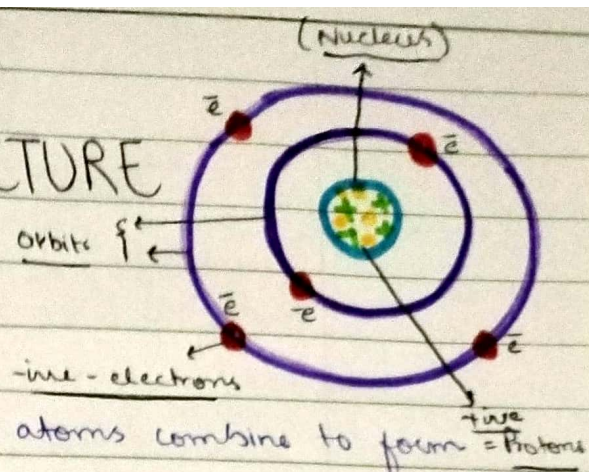 (Nucleus)
ē
ē
CTURE
orbits
ē
ē
ē
-ive - electrons
+ive
= Protons
atoms combine to form